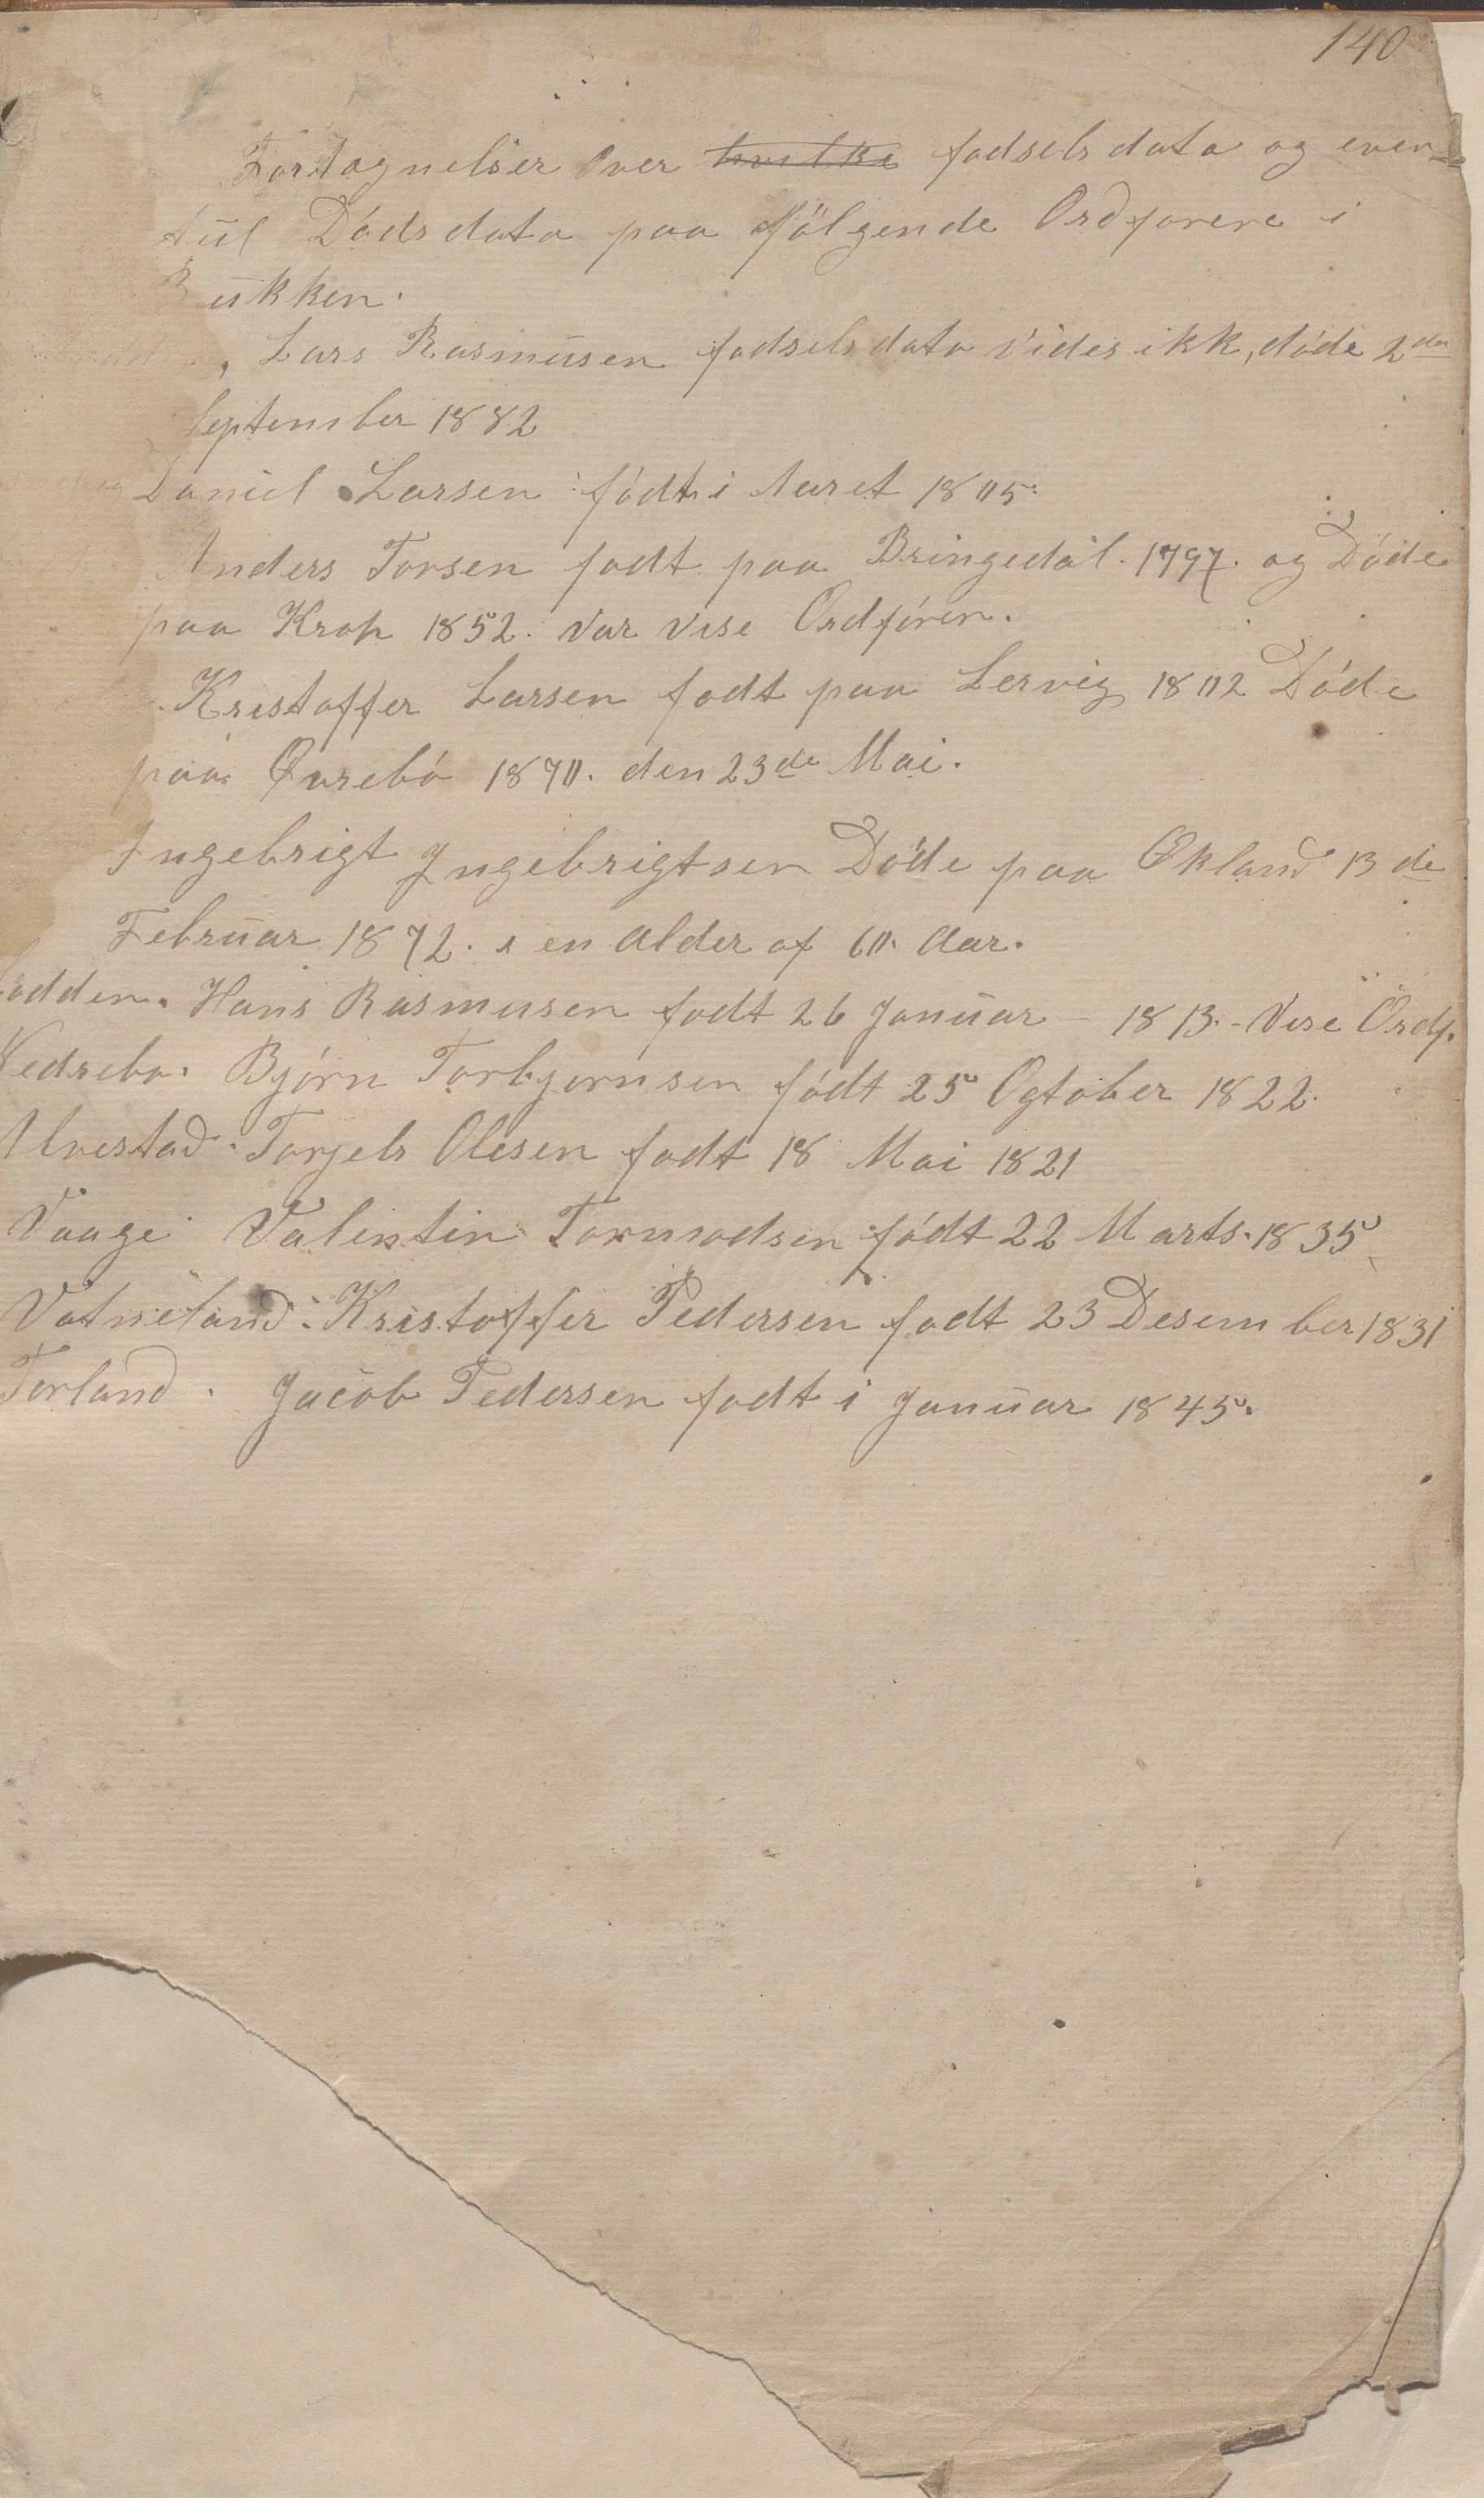 140
Fortegnelser Over hvilke fodsels data og even=
tuel Döds data paa fölgende Ordforere i
Rükken.
Lars Rasmüsen fodsels data vides ikk, döde 2den
September 1882
Daniel Larsen födt i Aaret 1805.
Anders Torsen fodt paa Bringedal. 1797. og Döde
paa Krop 1852. var vise Ordfören.
Kristoffer Larsen fodt paa Lervig 1802 Döde
paa Øvrebö 1870. den 23de Mai.
Ingebrigt Ingebrigtsen Döde paa Økland 13 de
Februar 1872. i en alder af 60. Aar.
odden. Hans Rasmusen fodt 26 Januar - 1813. - Vise Ordf.
Vedrebo. Bjórn Torbjornsen födt 25 Ogtober 1822.
Alvestad. Torjels Olesen fodt 18 Mai 1821
Vaage Valentin Tormodsen födt 22 Marts. 1835
Vatneland. Kristoffer Pedersen fodt 23 Desember 1831
Torland. Jacob Pedersen fodt i Januar 1845.